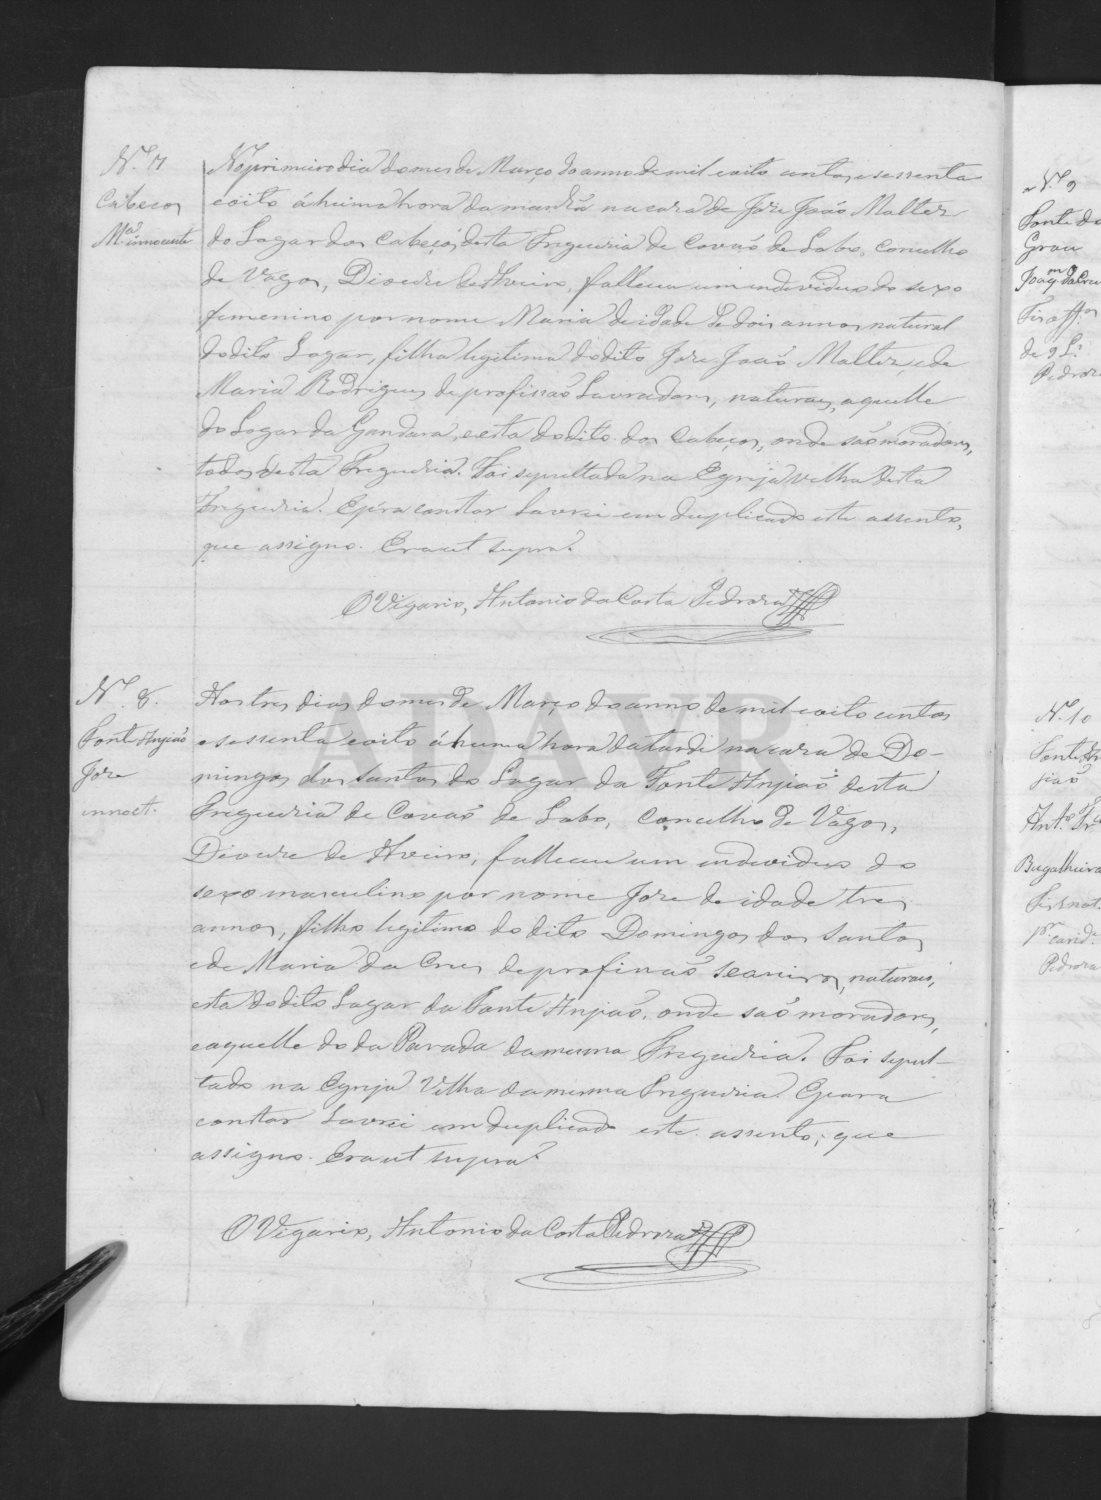 Nº 7
Cabeços
Mª innocente
No primeiro dia do mes de Março do anno de mil e oito centos e sessenta
e oito á huma hora da manhã na casa de Joze João Malter
do Lugar dos Cabeços desta Freguezia de Covaõ do Lobo, Concelho
de Vagos, Diocese de Aveiro, falleceu um individuo do sexo
femenino por nome Maria de idade de dois annos natural
do dito Lugar, filha legitima do dito Joze João Malter, e de
Maria Rodrigues de profissaõ Lavradores, naturaes, aquelle
do Lugar da Gandara, e esta do dito dos Cabeços, onde saõ moradores,
todos desta Freguezia. Foi sepultada na Egreja velha desta
Freguezia. E p.ra constar lavrei em duplicado este assento,
que assigno. Era ut supra.
O Vigario, Antonio da Costa Pedroza
Nº 8.
Fonte Anjiaõ
Joze
innoct.
Aos tres dias do mes de Março do anno de mil e oito centos
e sessenta e oito á huma hora da tarde na casa de Do-
mingos dos Santos do Lugar da Fonte Anjiaõ desta
Freguezia de Covaõ do Lobo, Concelho de Vagos,
Diocese de Aveiro, falleceu um individuo do
sexo masculino por nome Joze de idade tres
annos, filho legitimo do dito Domingos dos Santos
e de Maria da Cruz de profissaõ naturaes,
esta do dito Lugar da Fonte Anjiaõ, onde saõ moradores,
e aquelle do da Parada da mesma Freguezia. Foi sepul-
tado na Egreja Velha da mesma Freguezia. E para
constar lavrei em duplicado este assento, que
assigno. Era ut supra.
O Vigario, Antonio da Costa Pedroza
ADAVR
Nº 9
Fonte do
Grou
Nº 10
Bugalheira
Pedroza